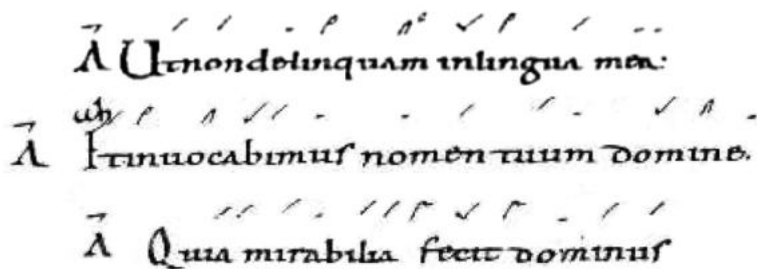 Ā Utnondelinquam inlingua mea:
Ā Etinuocabimus nomen tuum domine.
Ā Quia mirabilia fecit dominus